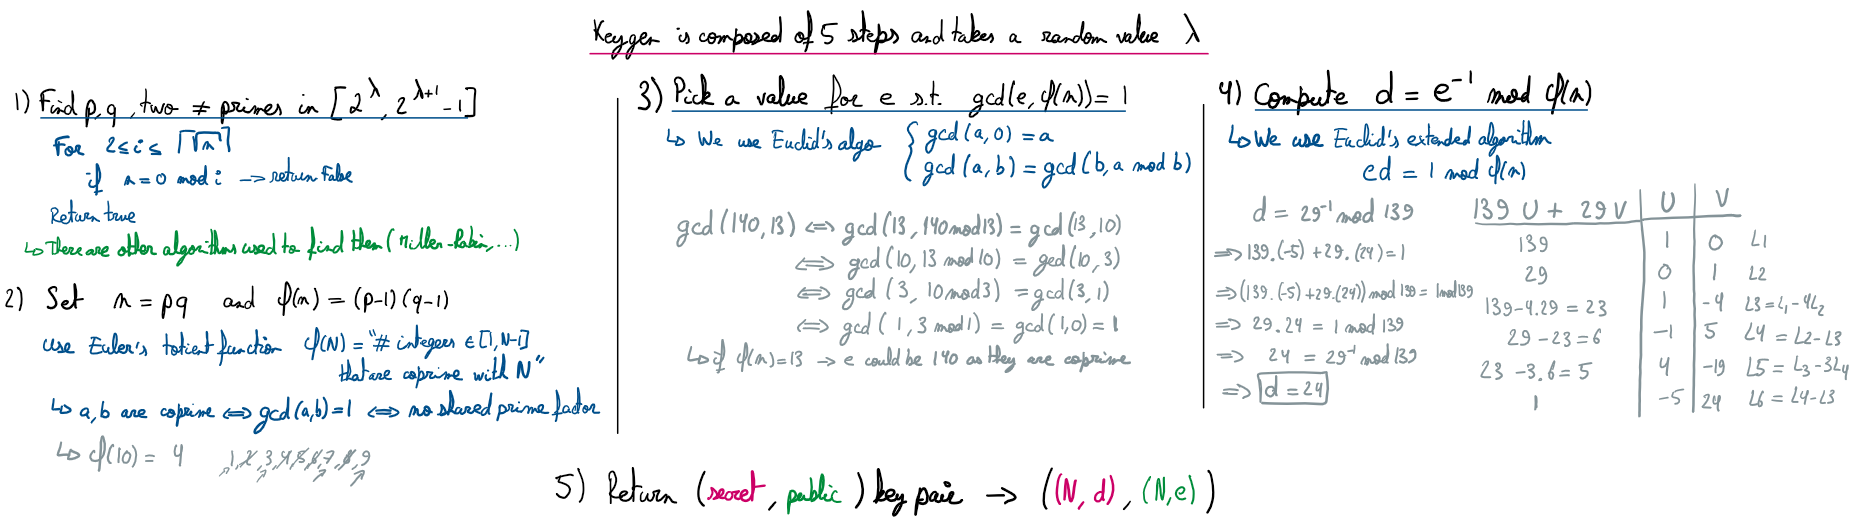 Keygen is composed of 5 steps and takes a random value λ
1) Find p, q, two ≠ primes in [2^λ, 2^(λ+1) -1]
For 2 ≤ i ≤ ⌈√n⌉
if n = 0 mod i → return False
Return true
↳ There are other algorithms used to find them (Miller-Rabin, ...)
2) Set n = pq and φ(n) = (p-1)(q-1)
use Euler's totient function φ(N) = "# integers ∈ [1, N-1]
that are coprime with N"
↳ a, b are coprime ⟺ gcd(a,b) = 1 ⟺ no shared prime factor
↳ φ(10) = 4 1, 2, 3, 4, 5, 6, 7, 8, 9
3) Pick a value for e s.t. gcd(e, φ(n)) = 1
↳ We use Euclid's algo { gcd(a, 0) = a
gcd(a, b) = gcd(b, a mod b)
gcd(140, 13) ⟺ gcd(13, 140 mod 13) = gcd(13, 10)
⟺ gcd(10, 13 mod 10) = gcd(10, 3)
⟺ gcd(3, 10 mod 3) = gcd(3, 1)
⟺ gcd(1, 3 mod 1) = gcd(1, 0) = 1
↳ if φ(n) = 13 → e could be 140 as they are coprime
4) Compute d = e⁻¹ mod φ(n)
↳ We use Euclid's extended algorithm
ed = 1 mod φ(n)
d = 29⁻¹ mod 139
⇒ 139.(-5) + 29.(24) = 1
⇒ (139.(-5) + 29.(24)) mod 139 = 1 mod 139
⇒ 29.24 = 1 mod 139
⇒ 24 = 29⁻¹ mod 139
⇒ d = 24
139 U + 29 V U V
139 1 0 L1
29 0 1 L2
139 - 4.29 = 23 1 -4 L3 = L1 - 4L2
29 - 23 = 6 -1 5 L4 = L2 - L3
23 - 3.6 = 5 4 -19 L5 = L3 - 3L4
1 -5 24 L6 = L4 - L3
5) Return (secret, public) key pair → ((N, d), (N, e))